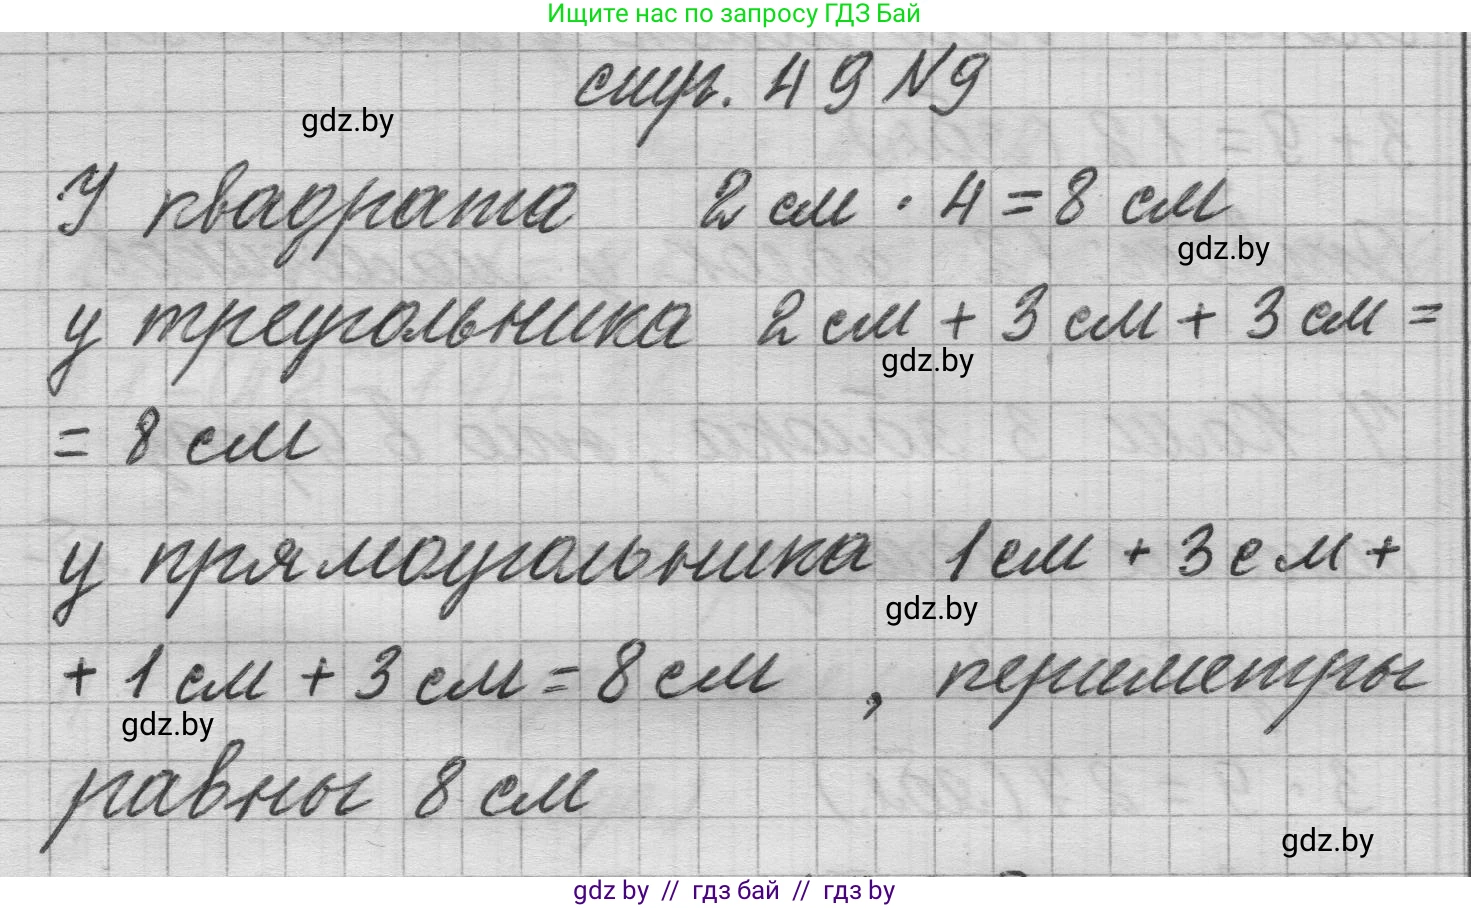 Ищите нас по запросу ГДЗ Бай
стр. 49 N9
gdz.by
У квадрата 2 см · 4 = 8 см
gdz.by
у треугольника 2 см + 3 см + 3 см =
gdz.by
= 8 см
у прямоугольника 1 см + 3 см +
gdz.by
+ 1 см + 3 см = 8 см , периметры
gdz.by
равны 8 см
gdz.by
gdz by // гдз бай // гдз by